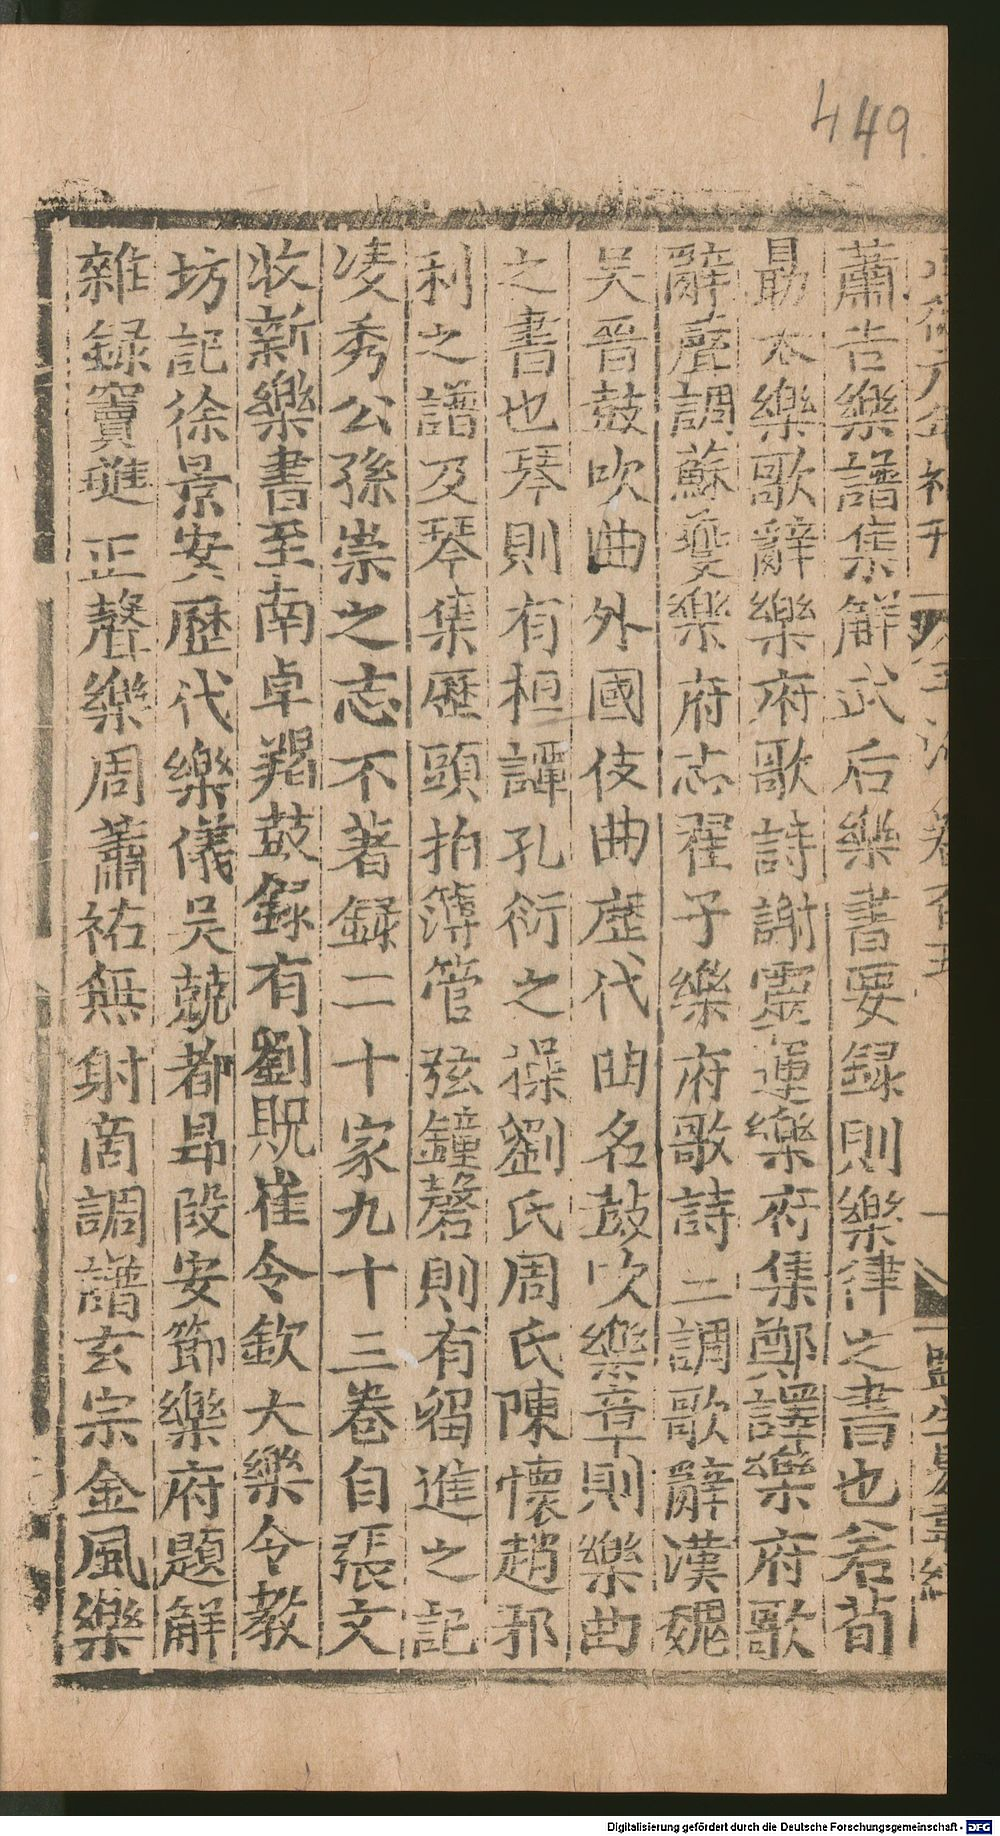 449
蕭吉樂譜集解武后樂書要録則樂律之書也若荀
勗太樂歌辭樂府歌詩謝靈運樂府集鄭譯樂府歌
辭聲調蘇夔樂府志翟子樂府歌詩二調歌辭漢魏
吴晉鼓吹曲外國伎曲歷代曲名鼓吹樂章則樂曲
之書也琴則有桓譚孔衍之操劉氏周氏陳懷趙邪
利之譜及琴集歷頭拍簿管弦鐘磬則有留進之記
凌秀公孫崇之志不著録二十家九十三卷自張文
收新樂書至南卓羯鼓録有劉貺崔令欽大樂令教
坊記徐景安歷代樂儀吴兢都昻段安節樂府題解
雜録竇璡正聲樂周蕭祐無射商調譜玄宗金風樂
Digitalisierung gefördert durch die Deutsche Forschungsgemeinschaft - DFG